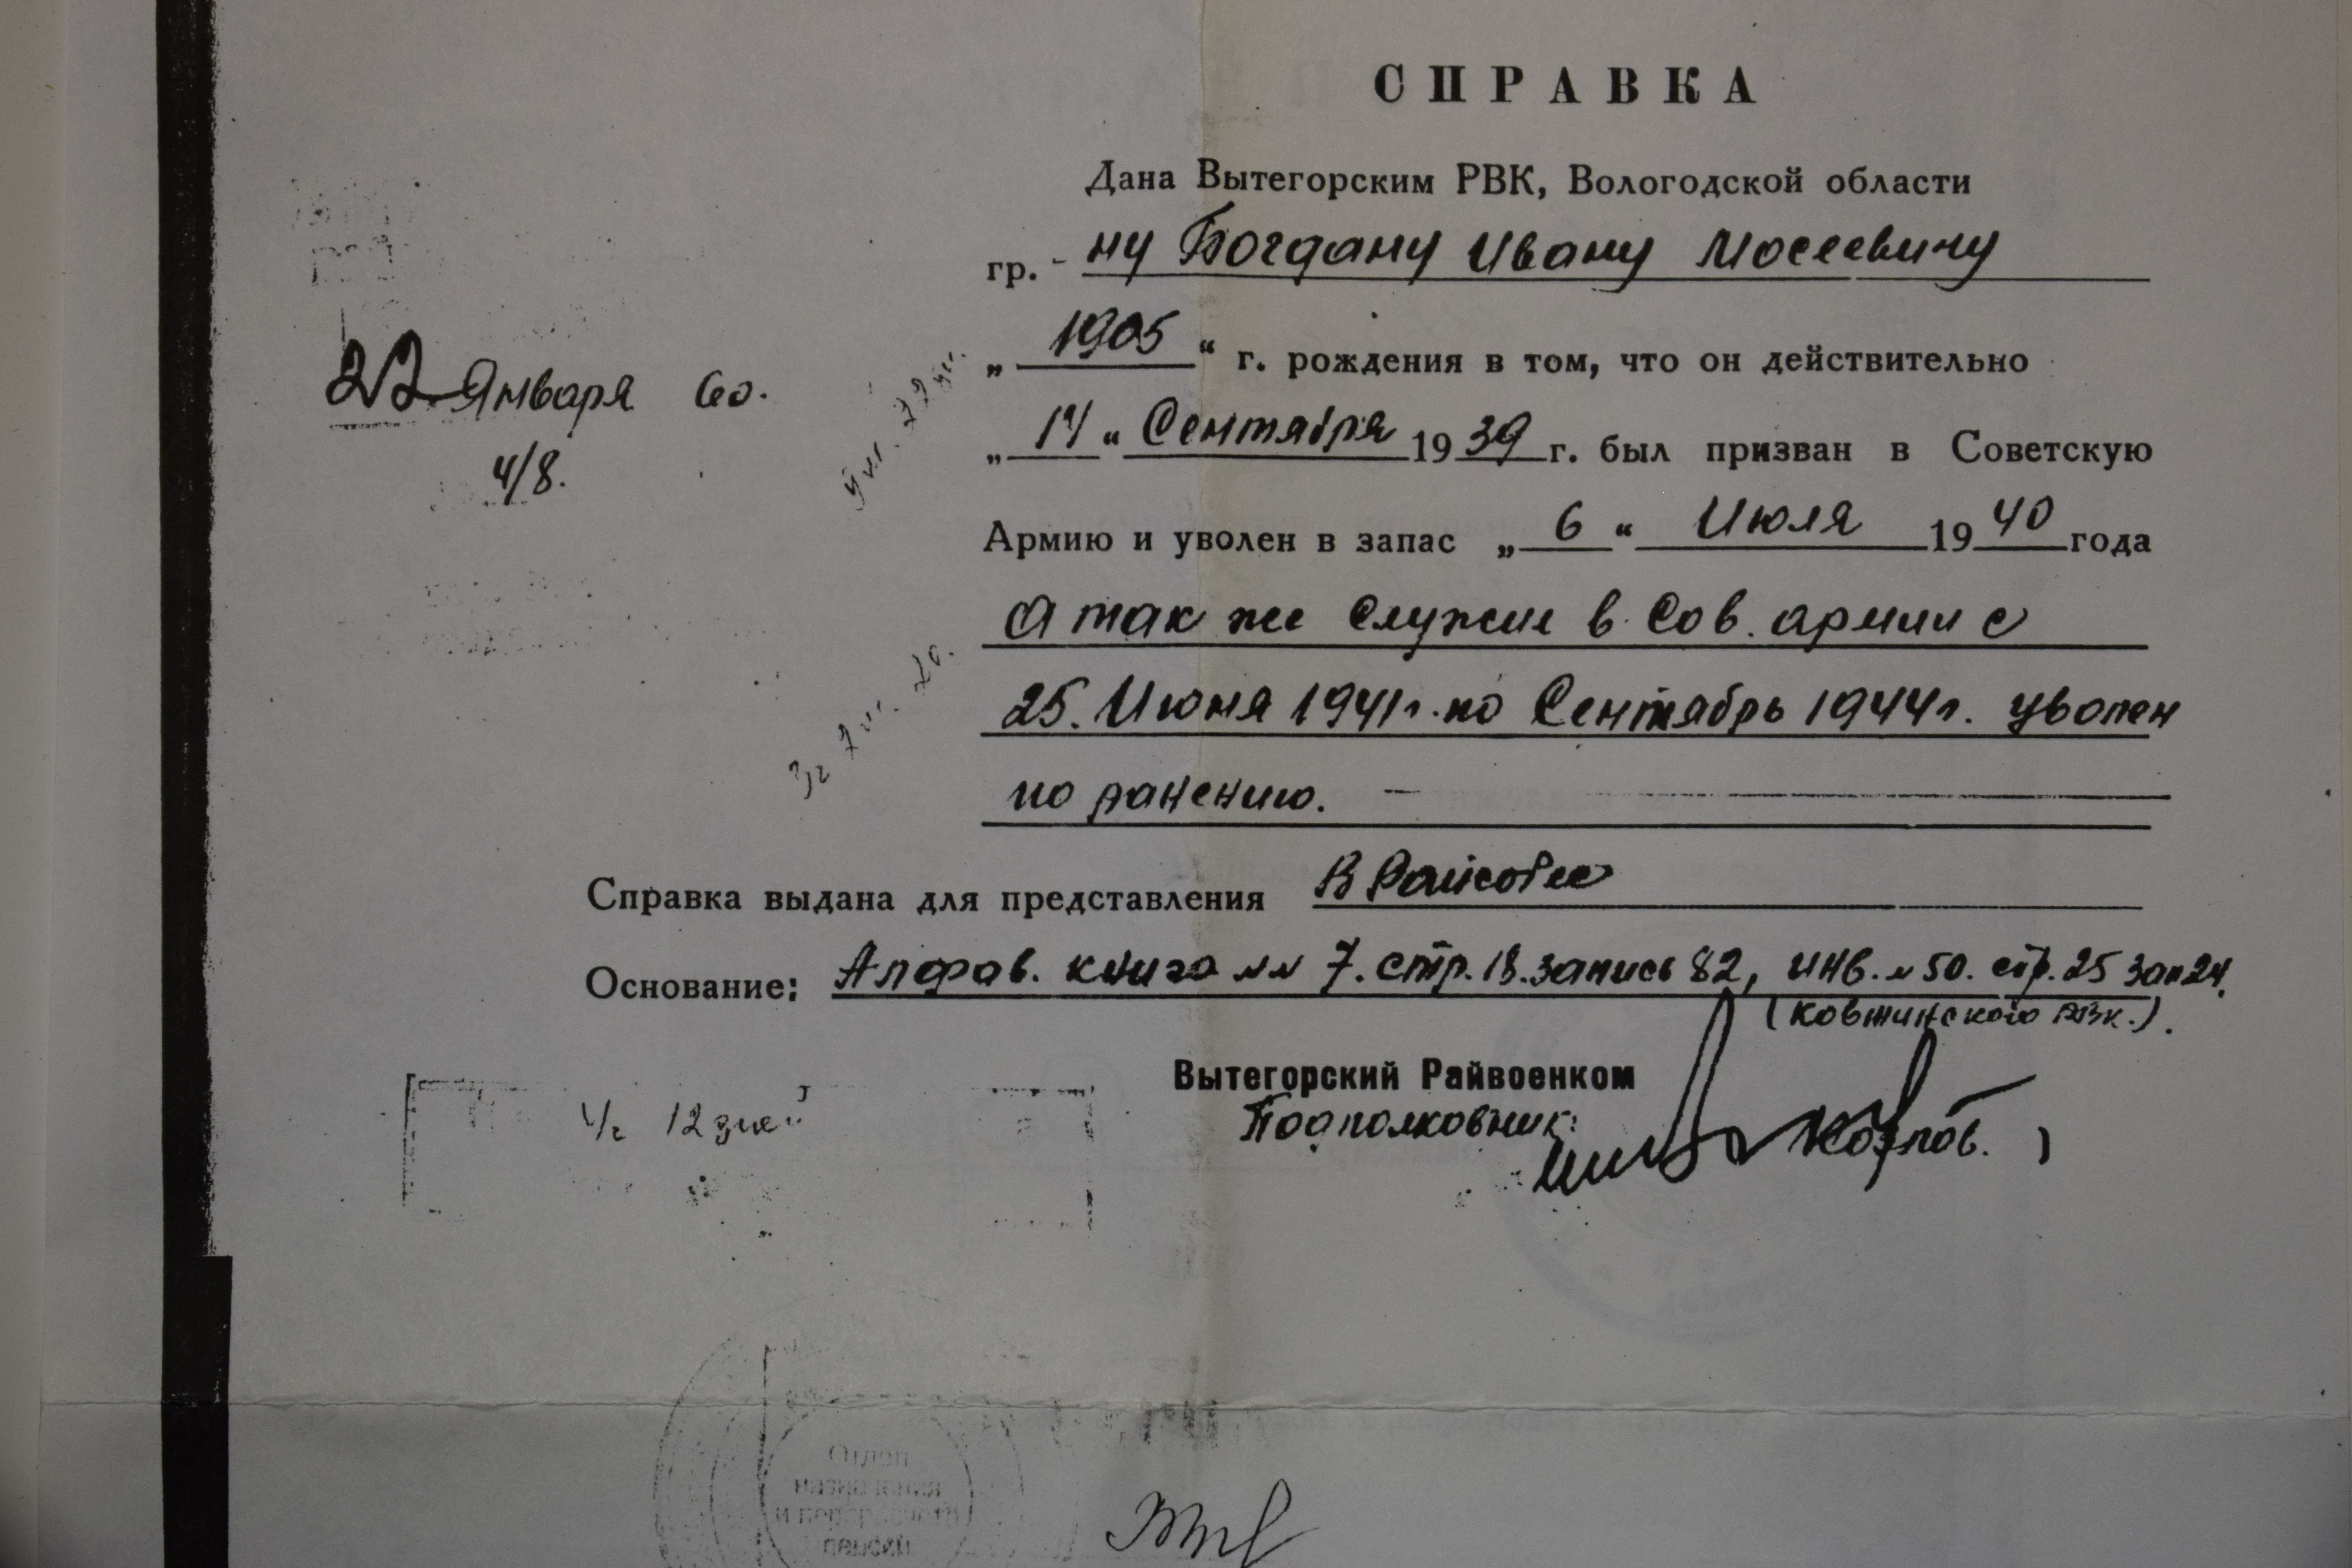 СПРАВКА
Дана Вытегорским РВК, Вологодской области
гр. - ну Богдану Ивану Мосеевичу
„ 1905 “ г. рождения в том, что он действительно
22 Января 60.
4/8.
„ 14 “ Сентября 19 39 г. был призван в Советскую
Армию и уволен в запас „ 6 “ Июля 19 40 года
А так же служил в Сов. армии с
25. Июня 1941г. по Сентябрь 1944г. уволен
по ранению. —
Справка выдана для представления В Райсобес
Основание: Алфав. книга №№ 7. стр. 18. запись 82, инв. № 50. стр. 25 зап 24.
(Ковжинского РВК.).
Вытегорский Райвоенком
Подполковник:
Козлов.
4/г 12 дней
Отдел
назначения
и перерасчета
пенсий